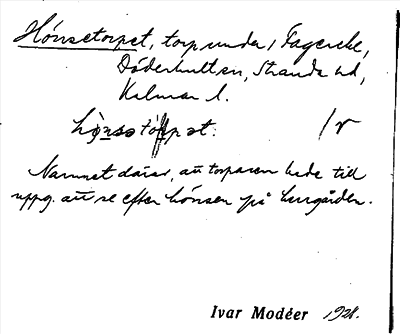 Hönsetorpet, torp under Fagereke,
Döderhultsn, Stranda hd,
Kalmar l.
Namnet därav, att torparen hade till
uppg. att se efter hönsen på herrgården.
Ivar Modéer 1928.